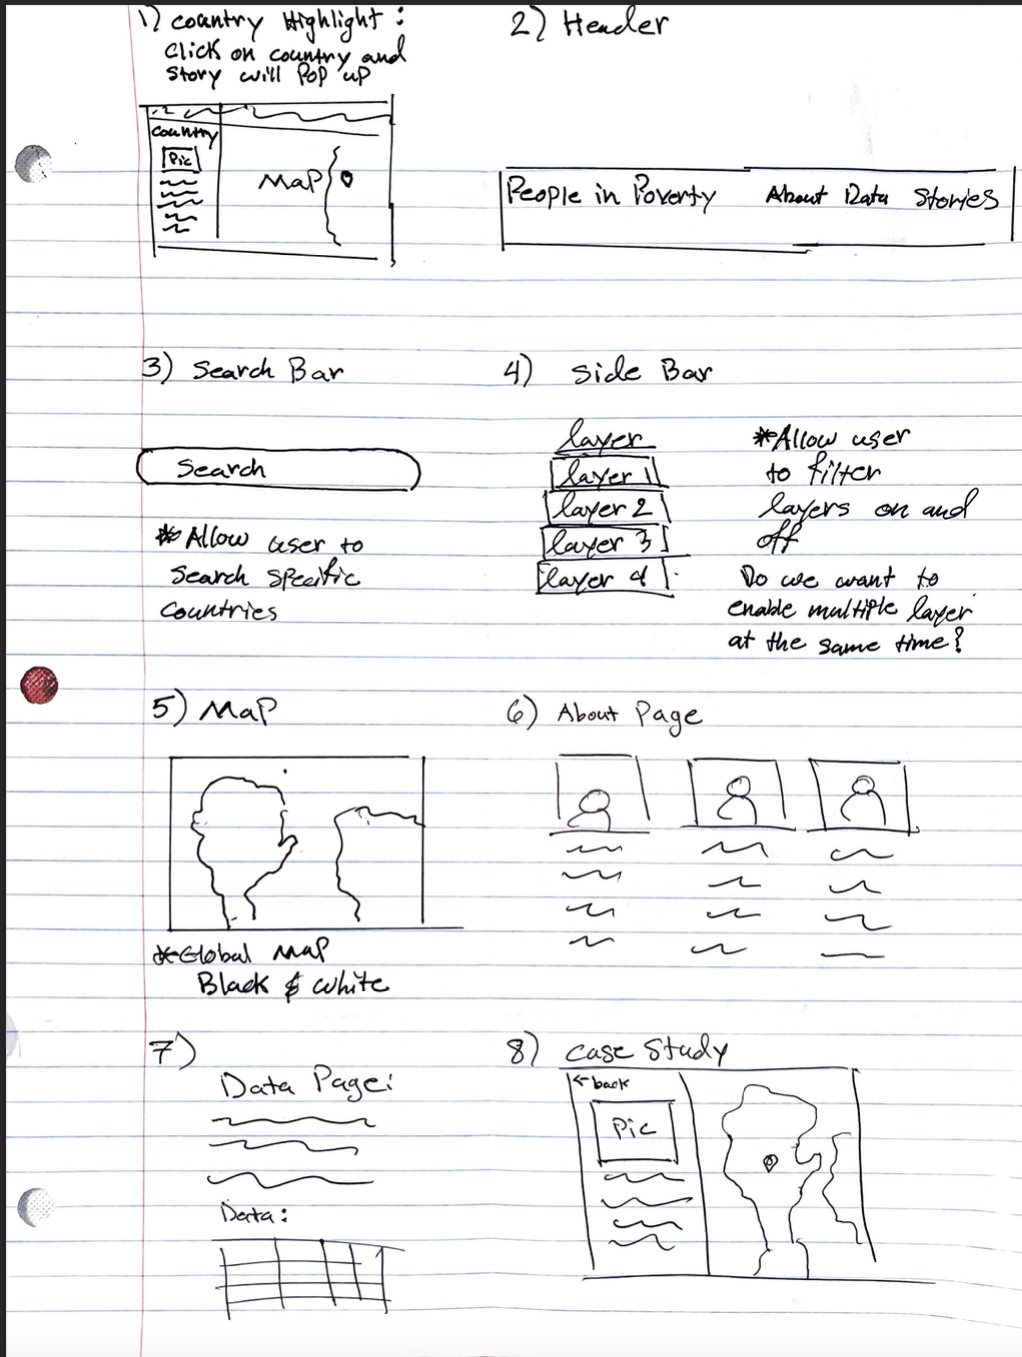 1) Country Highlight:
Click on country and
story will Pop up
Country
Pic
MaP
2) Header
People in Poverty About Data Stories
3) Search Bar
Search
* Allow user to
search specific
countries
4) Side Bar
layer
layer 1
layer 2
layer 3
layer 4
*Allow user
to filter
layers on and
off
Do we want to
enable multiple layer
at the same time?
5) MaP
*Global MaP
Black & white
6) About Page
7)
Data Page:
Data:
8) Case Study
← back
Pic